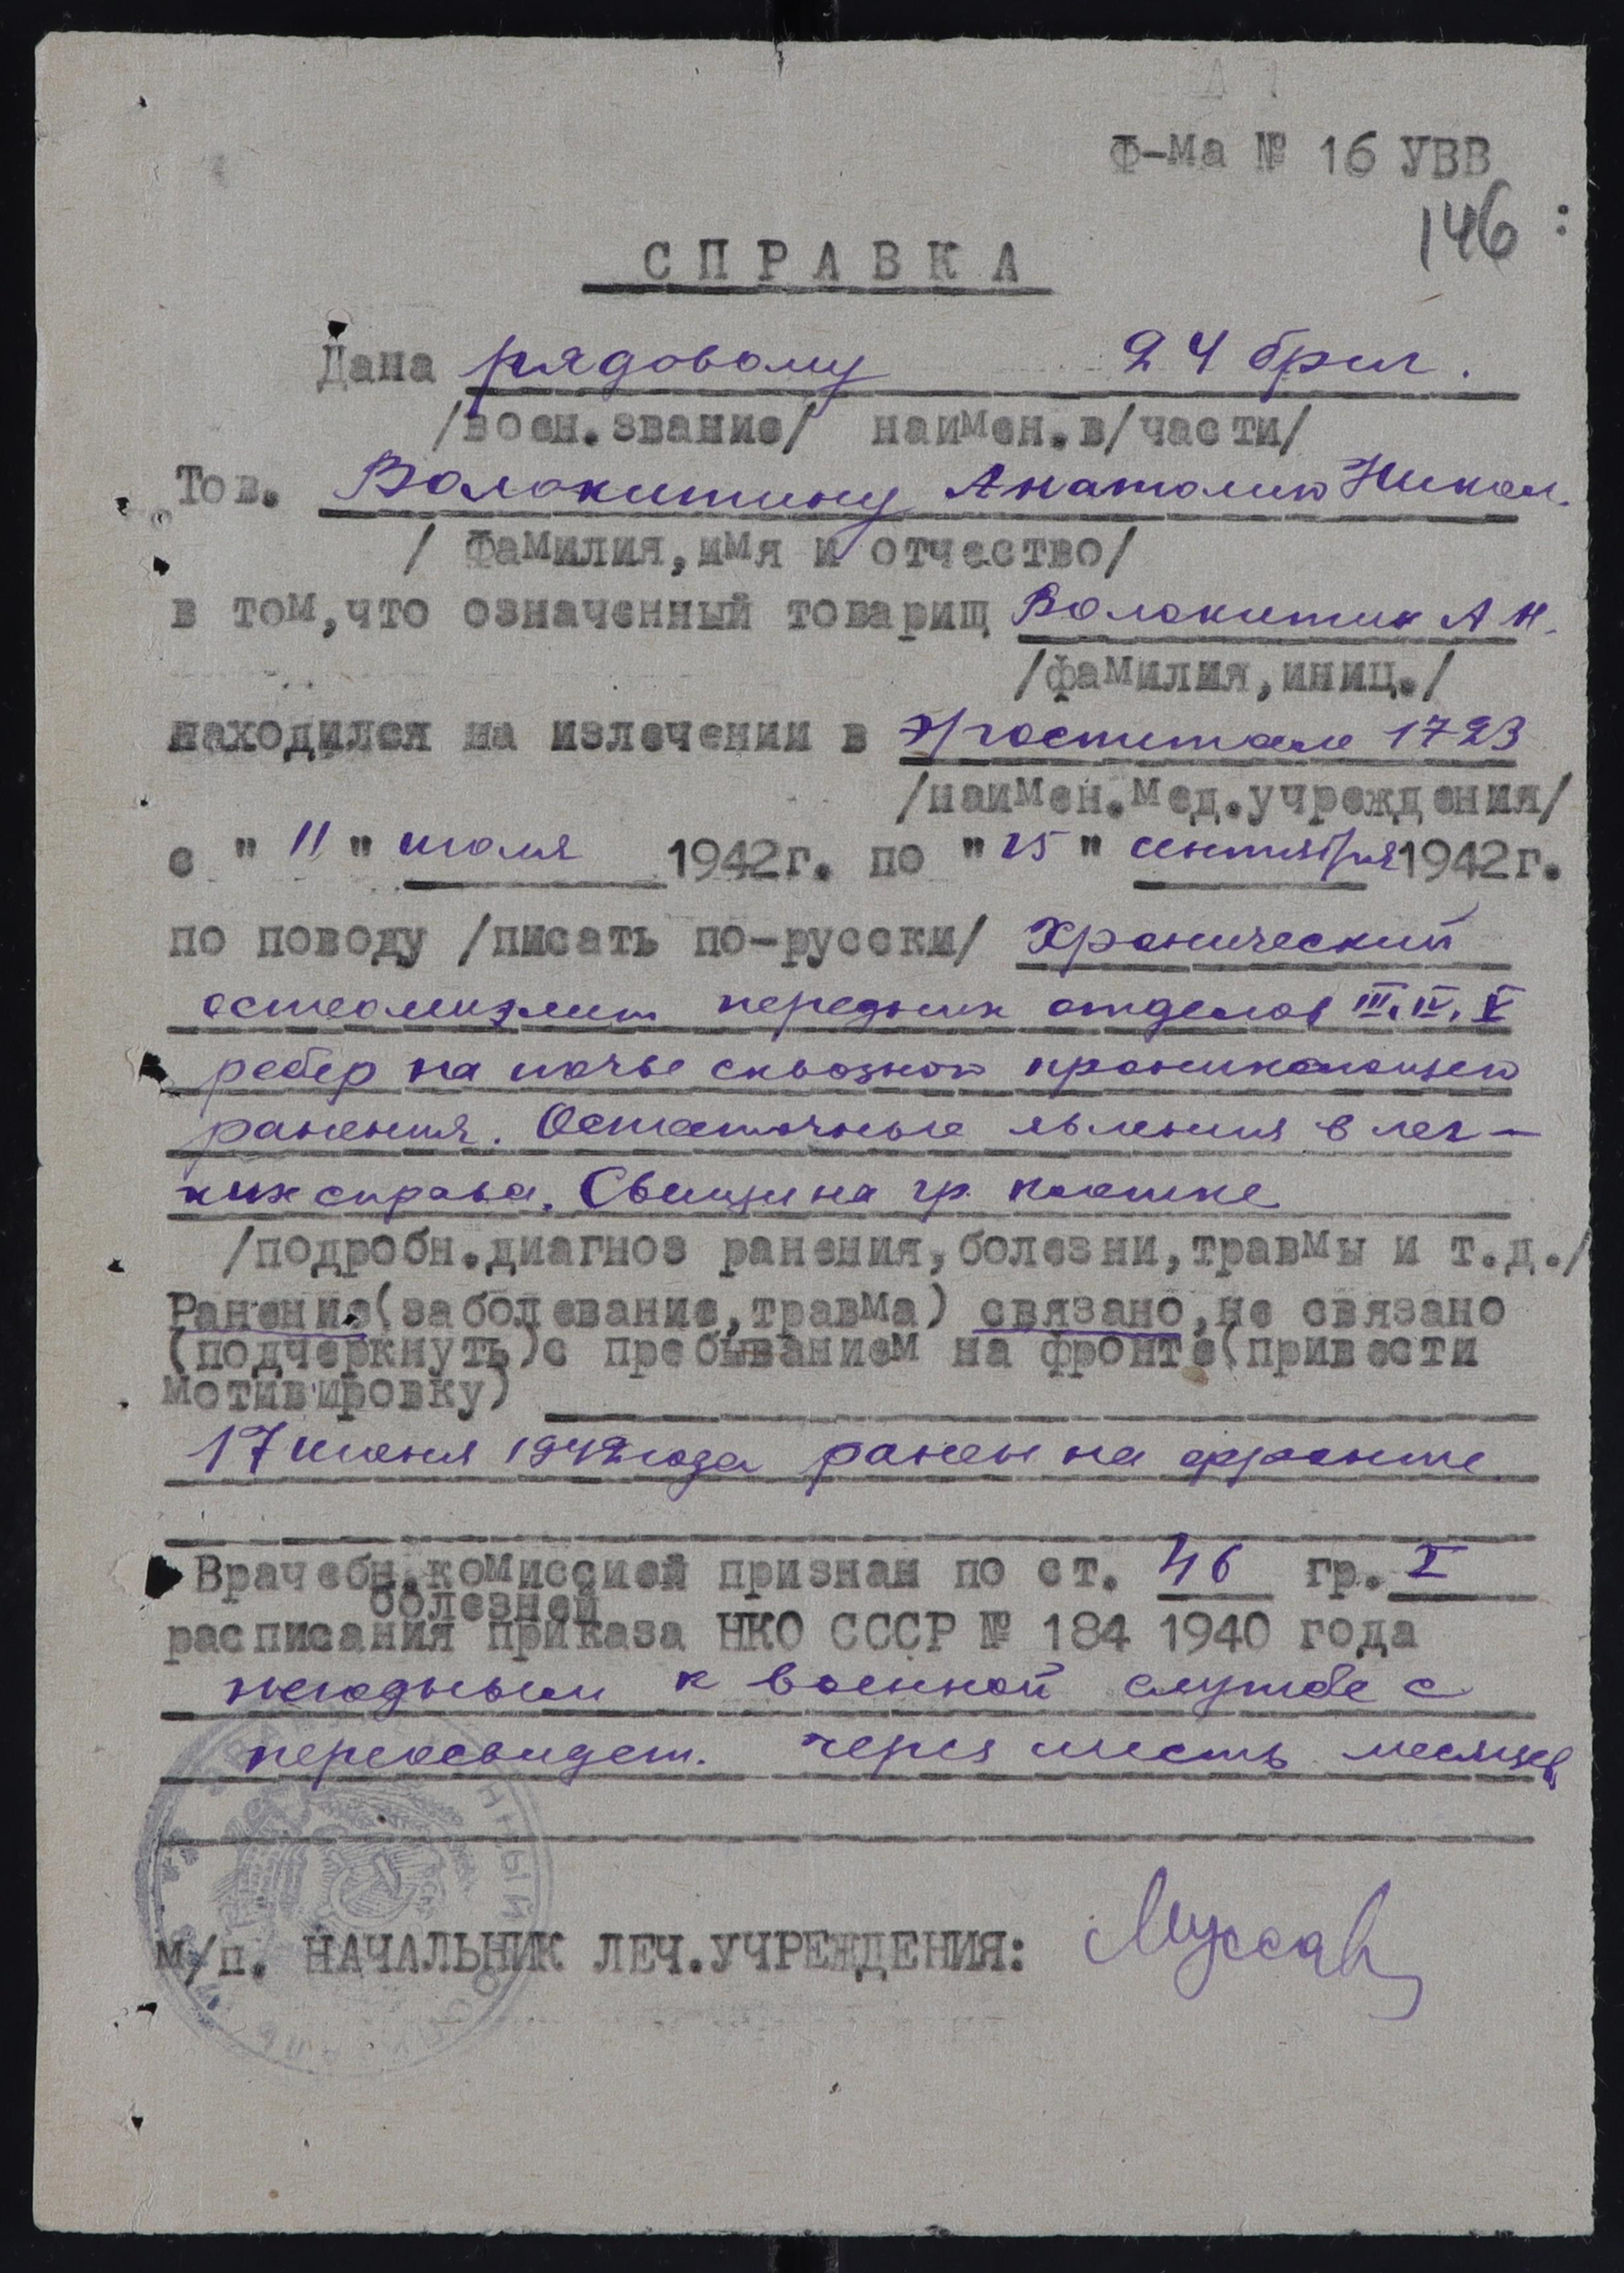 Ф-ма № 16 УВВ
146
СПРАВКА
Дана рядовому 24 бриг.
/воен.звание/ наимен.в/части/
Тов. Волокитину Анатолию Никол.
/ фамилия,имя и отчество/
в том,что означенный товарищ Волокитин А Н.
/фамилия,иниц./
находился на излечении в э/госпитале 1723
/наимен.мед.учреждения/
с " 11 " июля 1942г. по " 25 " сентября 1942г.
по поводу /писать по-русски/ Хронический
остеомиэлит передних отделов III, IV, V
ребер на почве сквозного проникающего
ранения. Остаточные явления в лег-
ких справа. Свищи на гр. клетке
/подробн.диагноз ранения,болезни,травмы и т.д./
Ранение(заболевание,травма) связано,не связано
(подчеркнуть)с пребыванием на фронте(привести
мотивировку)
17 июня 1942 года ранен на фронте
Врачебн.комиссией признан по ст. 46 гр. I
болезней
расписания приказа НКО СССР № 184 1940 года
негодным к военной службе с
переосвидет. через шесть месяцев
м/п. НАЧАЛЬНИК ЛЕЧ.УЧРЕЖДЕНИЯ: